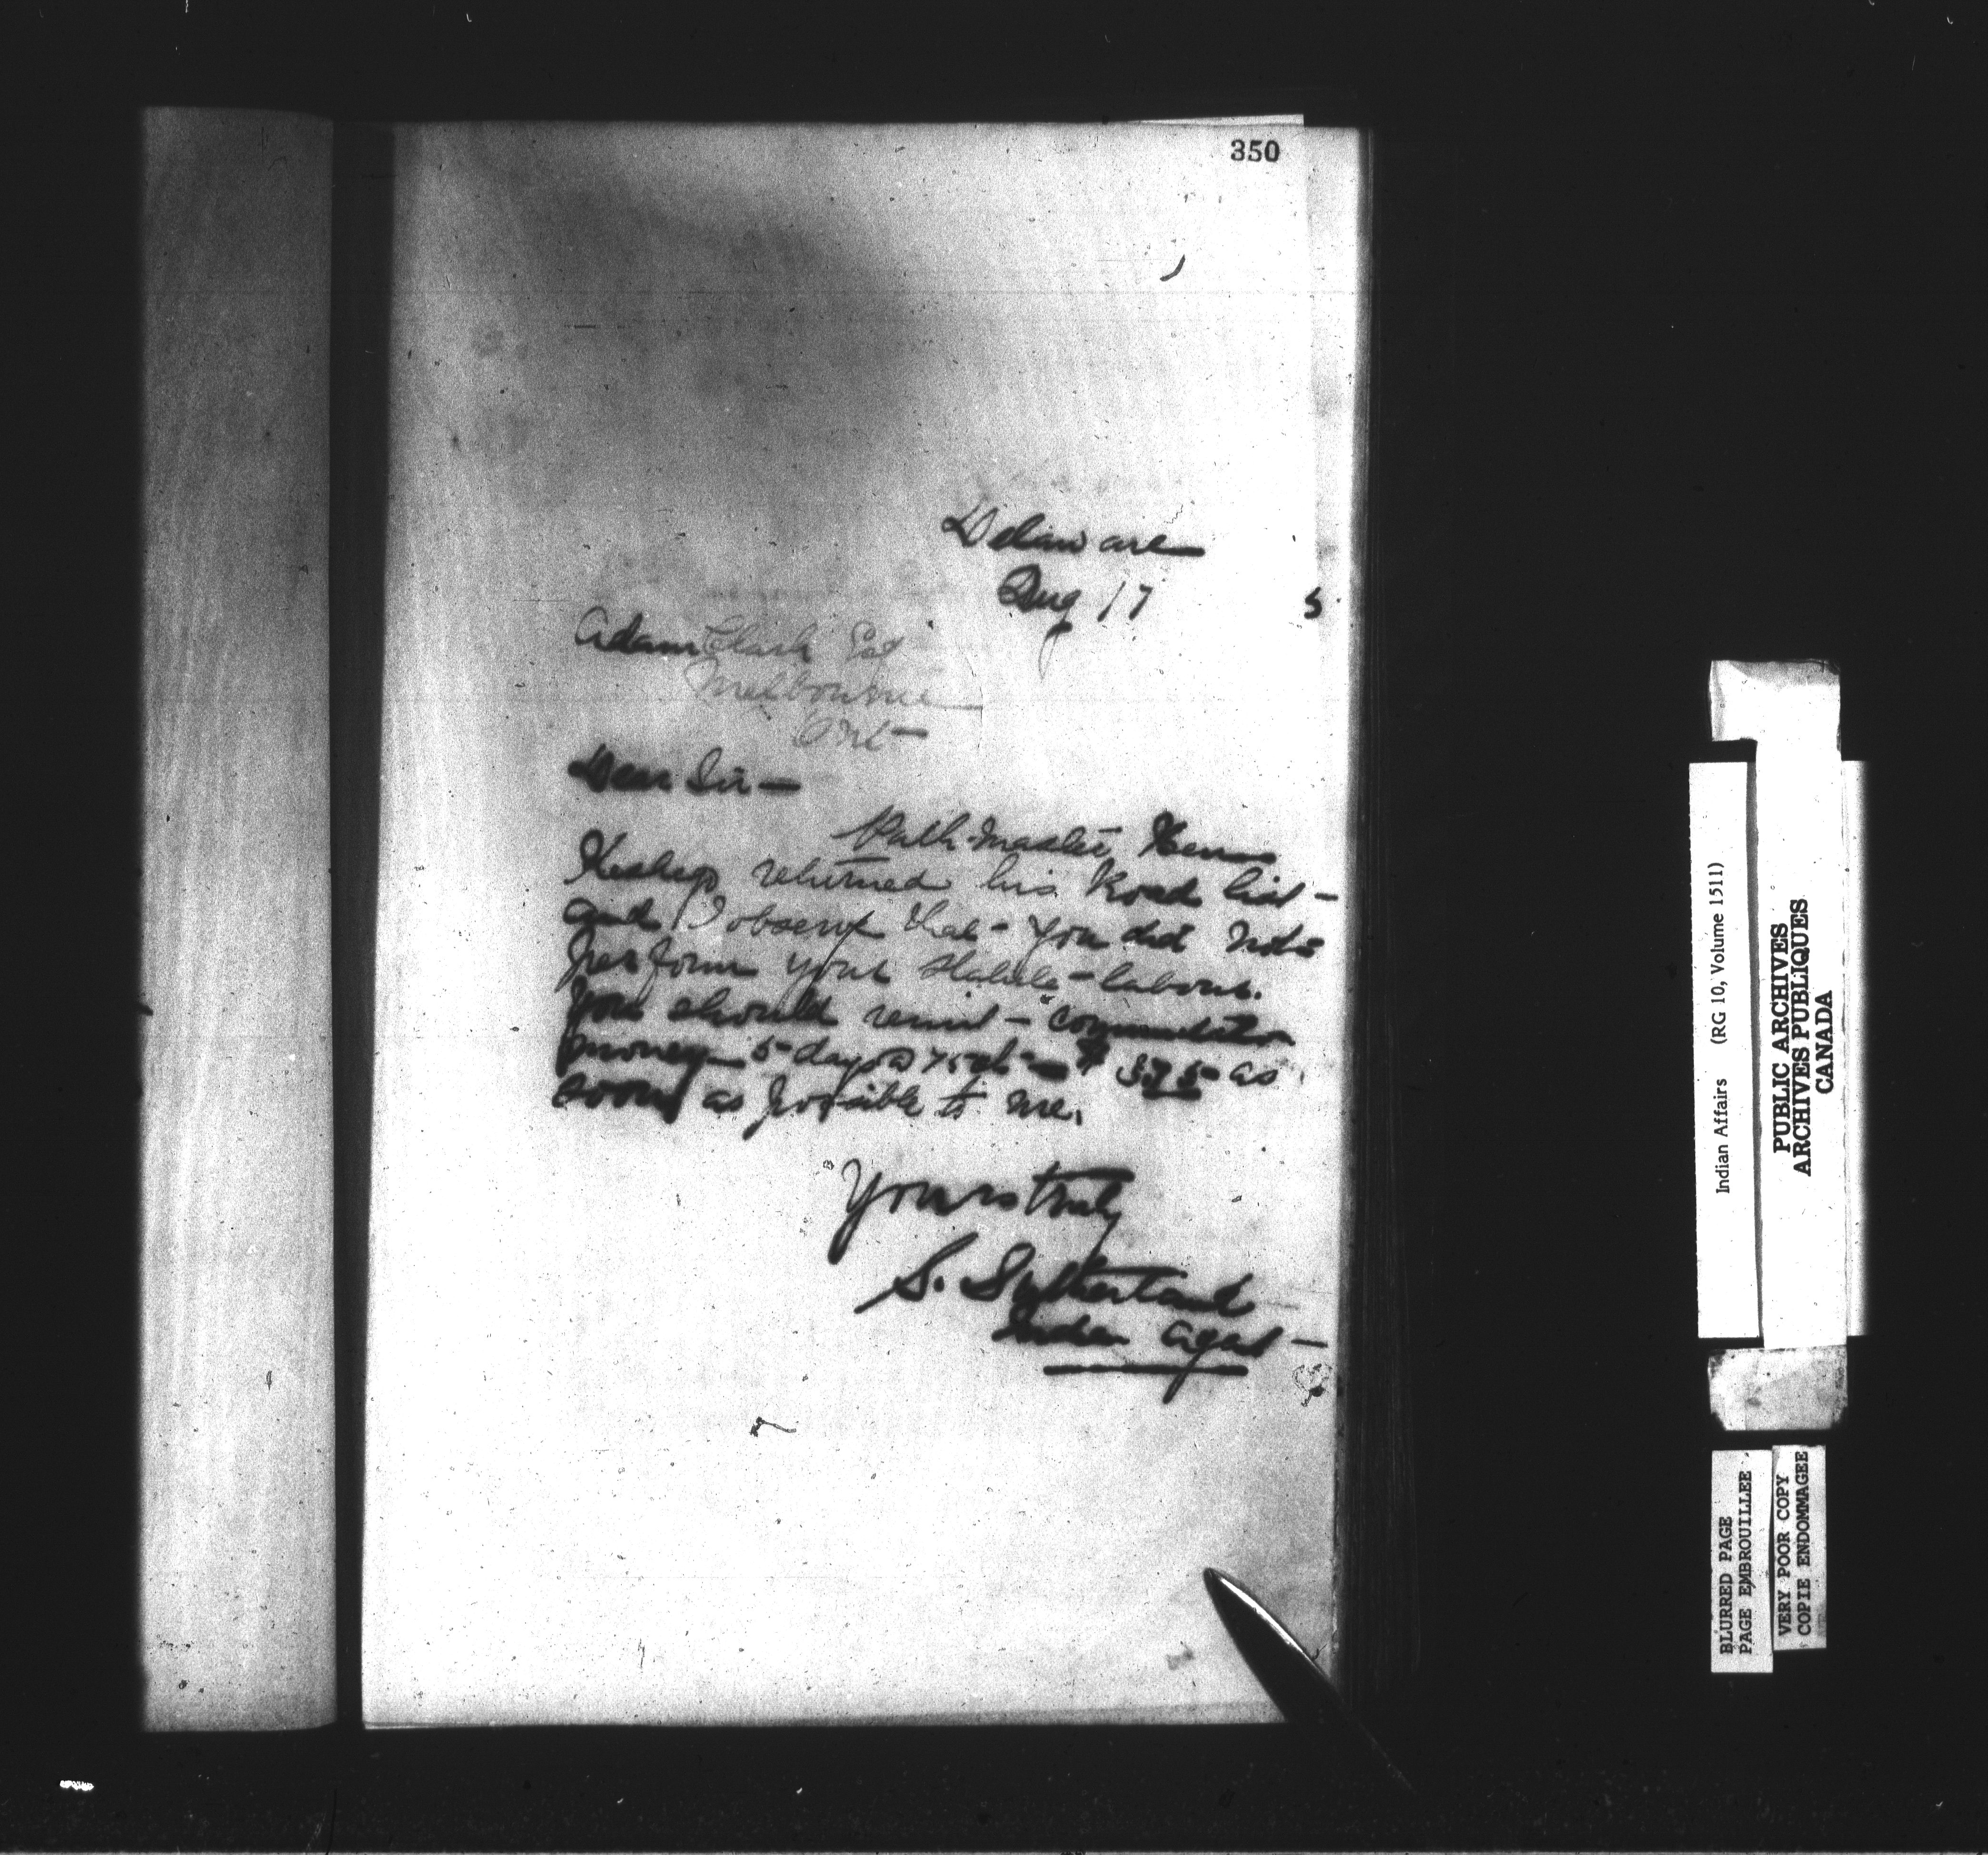 350
Delaware
Aug 17 5
Adam Clark Esq
Melbourne
Ont
Dear Sir —
Path-master
returned his Road list —
and I observe that - you did not
perform your Statute - labour.
You should remit - commutation
money 5 days @ 75 ct — $ 3.75 as
soon as possible to me.
Yours truly
S. Sutherland
Indian Agent —
Indian Affairs (RG 10, Volume 1511)
PUBLIC ARCHIVES
ARCHIVES PUBLIQUES
CANADA
BLURRED PAGE
PAGE EMBROUILLEE
VERY POOR COPY
COPIE ENDOMMAGEE